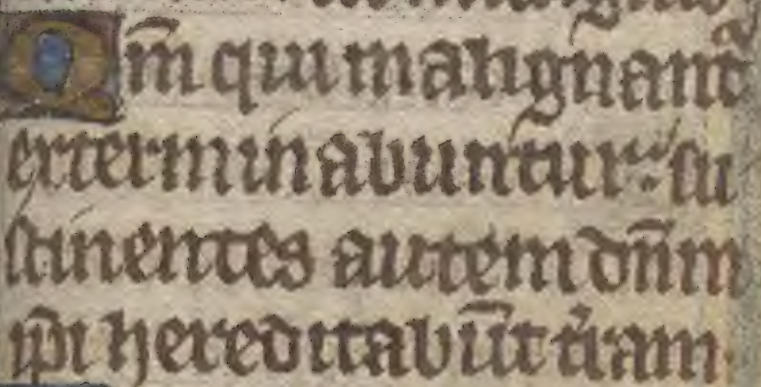 Qm̄ qui malignant᷑
exterminabuntur: su
stinentes autem dn̄m
ip̄i hereditabūt t̄ram.